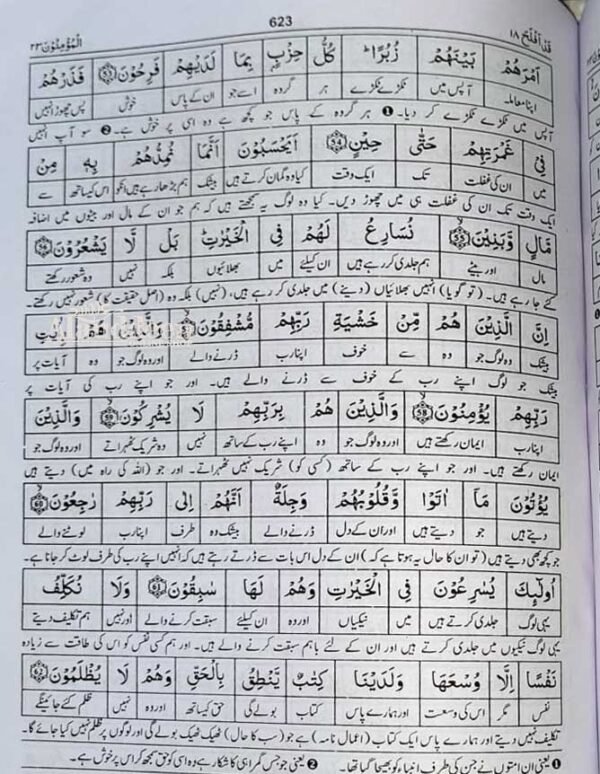 قَدْ اَفْلَحَ ١٨ 623 الْمُؤْمِنُوْنَ ٢٣
اَمْرَهُمْ بَيْنَهُمْ زُبُرًا ؕ كُلُّ حِزْبٍۭ بِمَا لَدَيْهِمْ فَرِحُوْنَ ﴿53﴾ فَذَرْهُمْ
اپنا معاملہ آپس میں ٹکڑے ٹکڑے ہر گروہ اسے جو ان کے پاس خوش پس چھوڑ انہیں
آپس میں ٹکڑے ٹکڑے کر دیا۔ ❶ ہر گروہ کے پاس جو کچھ ہے وہ اسی پر خوش ہے۔ ❷ سو آپ انہیں
فِيْ غَمْرَتِهِمْ حَتّٰى حِيْنٍ ﴿54﴾ اَيَحْسَبُوْنَ اَنَّمَا نُمِدُّهُمْ بِهٖ مِنْ
میں ان کی غفلت تک ایک وقت کیا وہ گمان کرتے ہیں بیشک ہم بڑھا رہے ہیں انکو اس کیساتھ سے
ایک وقت تک ان کی غفلت ہی میں چھوڑ دیں۔ کیا وہ لوگ یہ سمجھتے ہیں کہ ہم جو ان کے مال اور بیٹوں میں اضافہ
مَّالٍ وَّبَنِيْنَ ﴿55﴾ نُسَارِعُ لَهُمْ فِي الْخَيْرٰتِ ؕ بَلْ لَّا يَشْعُرُوْنَ ﴿56﴾
مال اور بیٹے ہم جلدی کر رہے ہیں ان کیلئے میں بھلائیوں بلکہ نہیں وہ شعور رکھتے
کئے جا رہے ہیں۔ (تو گویا) انہیں بھلائیاں (دینے) میں جلدی کر رہے ہیں، (نہیں) بلکہ وہ (اصل حقیقت کا) شعور نہیں رکھتے۔
اِنَّ الَّذِيْنَ هُمْ مِّنْ خَشْيَةِ رَبِّهِمْ مُّشْفِقُوْنَ ﴿57﴾ وَالَّذِيْنَ هُمْ بِاٰيٰتِ
بیشک وہ لوگ جو وہ سے خوف اپنا رب ڈرنے والے اور وہ لوگ جو وہ آیات پر
بیشک جو لوگ اپنے رب کے خوف سے ڈرنے والے ہیں۔ اور جو اپنے رب کی آیات پر
رَبِّهِمْ يُؤْمِنُوْنَ ﴿58﴾ وَالَّذِيْنَ هُمْ بِرَبِّهِمْ لَا يُشْرِكُوْنَ ﴿59﴾ وَالَّذِيْنَ
اپنا رب ایمان رکھتے ہیں اور وہ لوگ جو وہ اپنے رب کے ساتھ نہیں وہ شریک ٹھہراتے اور وہ لوگ جو
ایمان رکھتے ہیں۔ اور جو اپنے رب کے ساتھ (کسی کو) شریک نہیں ٹھہراتے۔ اور جو (اللہ کی راہ میں) دیتے ہیں
يُؤْتُوْنَ مَاۤ اٰتَوْا وَّقُلُوْبُهُمْ وَجِلَةٌ اَنَّهُمْ اِلٰى رَبِّهِمْ رٰجِعُوْنَ ﴿60﴾
دیتے ہیں جو دیتے ہیں اور ان کے دل ڈرنے والے بیشک وہ طرف اپنا رب لوٹنے والے
جو کچھ بھی دیتے ہیں (تو ان کا حال یہ ہوتا ہے کہ) ان کے دل اس بات سے ڈرتے رہتے ہیں کہ انہیں اپنے رب کی طرف لوٹ کر جانا ہے۔
اُولٰٓئِكَ يُسٰرِعُوْنَ فِي الْخَيْرٰتِ وَهُمْ لَهَا سٰبِقُوْنَ ﴿61﴾ وَلَا نُكَلِّفُ
یہی لوگ جلدی کرتے ہیں میں نیکیاں اور وہ ان کیلئے سبقت کرنے والے اور نہیں ہم تکلیف دیتے
یہی لوگ نیکیوں میں جلدی کرتے ہیں اور ان کے لئے باہم سبقت کرنے والے ہیں۔ اور ہم کسی نفس کو اس کی طاقت سے زیادہ
نَفْسًا اِلَّا وُسْعَهَا وَلَدَيْنَا كِتٰبٌ يَّنْطِقُ بِالْحَقِّ وَهُمْ لَا يُظْلَمُوْنَ ﴿62﴾
نفس مگر اس کی وسعت اور ہمارے پاس کتاب بولے گی حق کیساتھ اور وہ نہیں ظلم کئے جائینگے
تکلیف نہیں دیتے اور ہمارے پاس ایک کتاب (اعمال نامہ) ہے جو (سب کا حال) ٹھیک ٹھیک بولے گی اور لوگوں پر ظلم نہیں کیا جائے گا۔
❶ یعنی ان امتوں نے جن کی طرف انبیاء کو بھیجا گیا تھا۔ ❷ یعنی جو جس گمراہی کا شکار ہے وہ اسی کو حق سمجھ کر اس پر خوش ہے۔